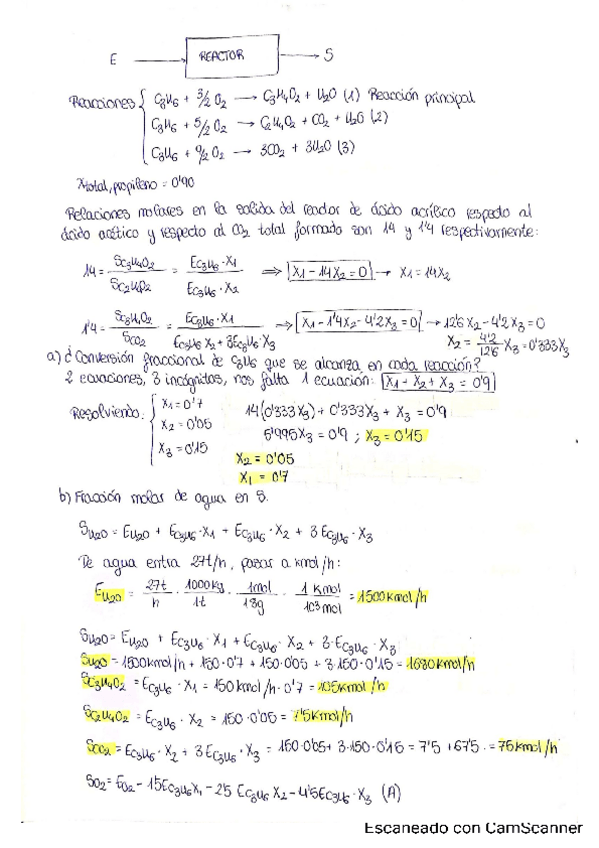 E → REACTOR → S
Reacciones { C₃H₆ + 3/2 O₂ → C₃H₄O₂ + H₂O (1) Reacción principal
C₃H₆ + 5/2 O₂ → C₂H₄O₂ + CO₂ + H₂O (2)
C₃H₆ + 9/2 O₂ → 3CO₂ + 3H₂O (3)
Xtotal, propileno = 0'90
Relaciones molares en la salida del reactor de ácido acrílico respecto al
ácido acético y respecto al CO₂ total formado son 14 y 1'4 respectivamente:
14 = SC₃H₄O₂ / SC₂H₄O₂ = EC₃H₆·X₁ / EC₃H₆·X₂ ⟹ X₁ - 14X₂ = 0 → X₁ = 14X₂
1'4 = SC₃H₄O₂ / SCO₂ = EC₃H₆·X₁ / EC₃H₆X₂ + 3EC₃H₆·X₃ ⟹ X₁ - 1'4X₂ - 4'2X₃ = 0 → 12'6X₂ - 4'2X₃ = 0
X₂ = 4'2/12'6 X₃ = 0'333X₃
a) ¿Conversión fraccional de C₃H₆ que se alcanza en cada reacción?
2 ecuaciones, 3 incógnitas, nos falta 1 ecuación: X₁ + X₂ + X₃ = 0'9
Resolviendo: { X₁ = 0'7 14(0'333X₃) + 0'333X₃ + X₃ = 0'9
X₂ = 0'05 5'995X₃ = 0'9 ; X₃ = 0'15
X₃ = 0'15 X₂ = 0'05
X₁ = 0'7
b) Fracción molar de agua en S.
SH₂O = EH₂O + EC₃H₆·X₁ + EC₃H₆·X₂ + 3EC₃H₆·X₃
De agua entra 27t/h, pasar a kmol/h:
EH₂O = 27t/h · 1000kg/1t · 1mol/18g · 1 Kmol/10³mol = 1500kmol/h
SH₂O = EH₂O + EC₃H₆·X₁ + EC₃H₆·X₂ + 3·EC₃H₆·X₃
SH₂O = 1500kmol/h + 150·0'7 + 150·0'05 + 3·150·0'15 = 1680kmol/h
SC₃H₄O₂ = EC₃H₆·X₁ = 150kmol/h·0'7 = 105kmol/h
SC₂H₄O₂ = EC₃H₆·X₂ = 150·0'05 = 7'5kmol/h
SCO₂ = EC₃H₆·X₂ + 3EC₃H₆·X₃ = 150·0'05 + 3·150·0'15 = 7'5 + 67'5 = 75kmol/h
SO₂ = EO₂ - 1'5EC₃H₆X₁ - 2'5 EC₃H₆X₂ - 4'5EC₃H₆·X₃ (A)
Escaneado con CamScanner